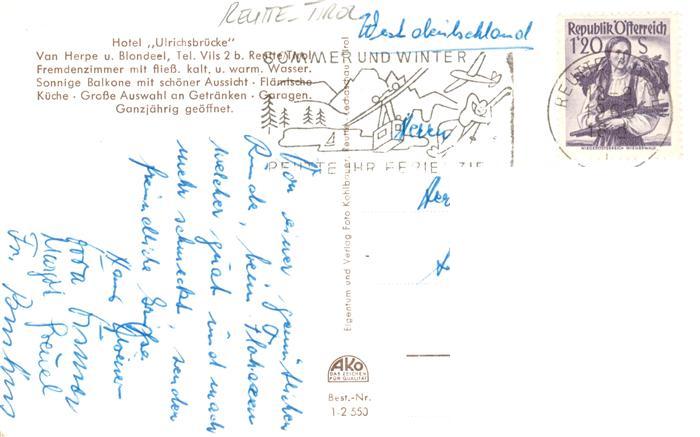 REUTTE-TIROL
Westdeutschland
Hotel „Ulrichsbrücke"
Van Herpe u. Blondeel, Tel. Vils 2 b. Reutte Tirol
Fremdenzimmer mit fließ. kalt, u. warm. Wasser.
Sonnige Balkone mit schöner Aussicht · Flämische
Küche · Große Auswahl an Getränken · Garagen.
Ganzjährig geöffnet.
SOMMER UND WINTER
REUTTE IHR FERIENZIE
Republik Österreich
1'20 S
NIEDERÖSTERREICH WIENERWALD
REUTTE
Herrn
Von einer gemütlichen
Runde, beim
welcher gut und nach
mehr schmeckt, senden
freundliche Grüße
Hans
Eigentum und Verlag Foto Kohlbauer, Reutte, Lechaschau, Tirol
AKO
DAS ZEICHEN
FÜR QUALITÄT
Best.-Nr.
1-2 550